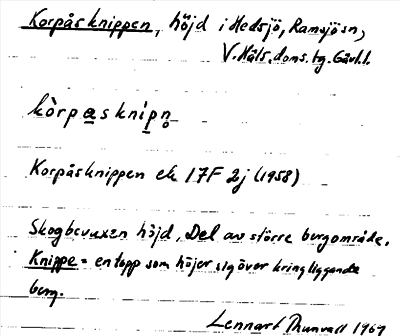 Korpåsknippen, höjd i Hedsjö, Ramsjö sn,
V. Häls. doms. tg. Gävl. l.
kòrpasknìpn̥
Korpåsknippen ek 17F 2j (1958)
Skogbevuxen höjd. Del av större bergområde.
Knippe = en topp som höjer sig över kringliggande
berg.
Lennart Thunvall 1967